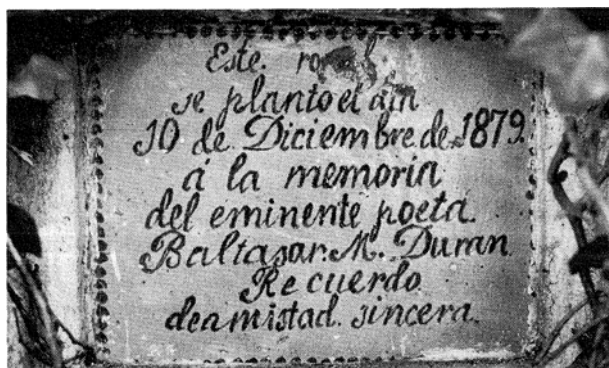 Este.
se planto el dia
10 de Diciembre de 1879.
á la memoria
del eminente poeta.
Baltasar. M. Duran
Re cuerdo
de amistad. sincera.